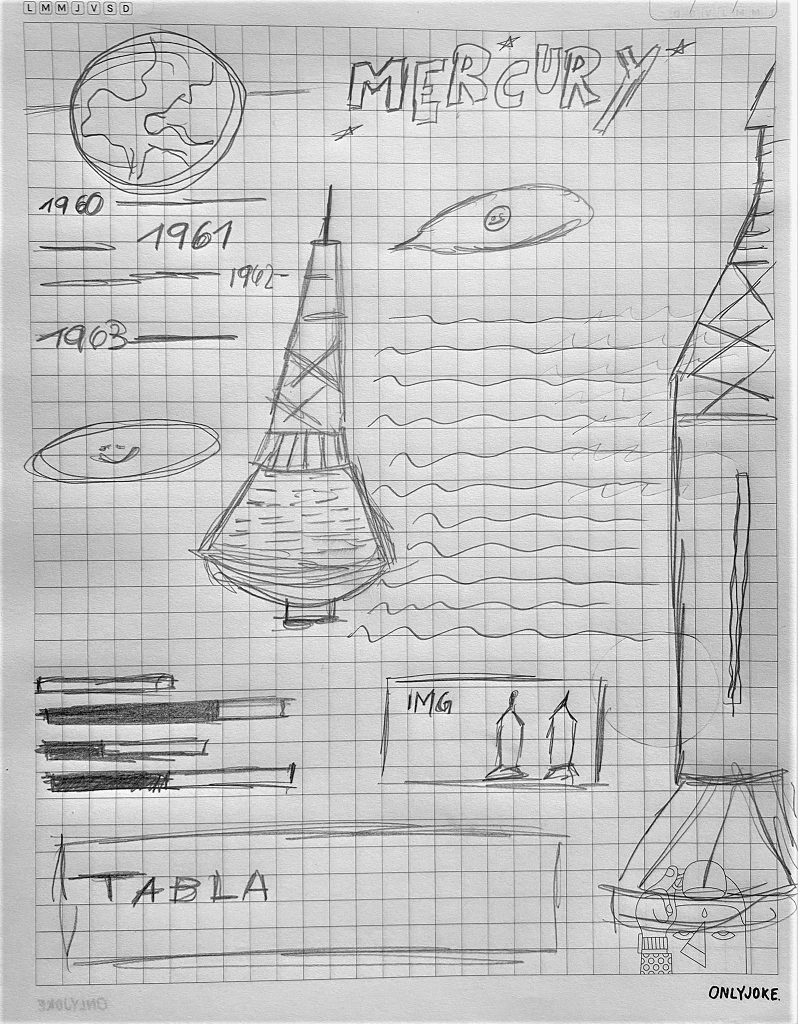 L M M J V S D
MERCURY
1960
1961
1962
1963
IMG
TABLA
ONLYJOKE.